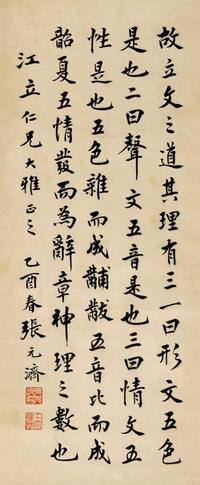 故立文之道其理有三一曰形文五色
是也二曰聲文五音是也三曰情文五
性是也五色雜而成黼黻五音比而成
韶夏五情發而為辭章神理之數也
江立仁兄大雅正之 乙酉春張元濟